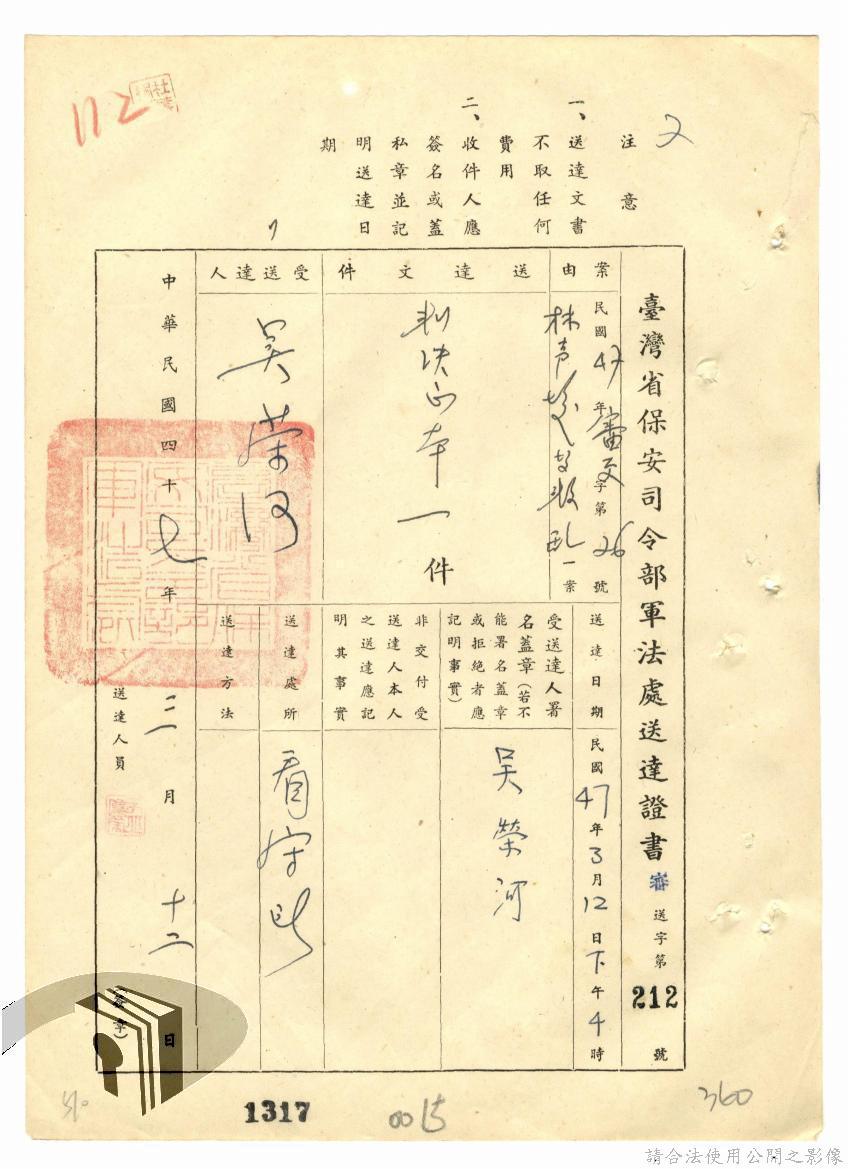 112
2
注意
一、送達文書
不取任何
費用
二、收件人應
簽名或蓋
私章並記
明送達日
期
臺灣省保安司令部軍法處送達證書審送字第212號
案由
民國47年審字第26號
林 叛亂一案
送達文件
判決正本一件
受送達人
吳榮河
送達日期
民國47年3月12日下午4時
受送達人署
名蓋章(若不
能署名蓋章
或拒絕者應
記明事實)
吳榮河
非交付受
送達人本人
之送達應記
明其事實
送達處所
看守所
送達方法
中華民國四十七年三月十二日
送達人員
(簽章)
1317
0015
360
請合法使用公開之影像